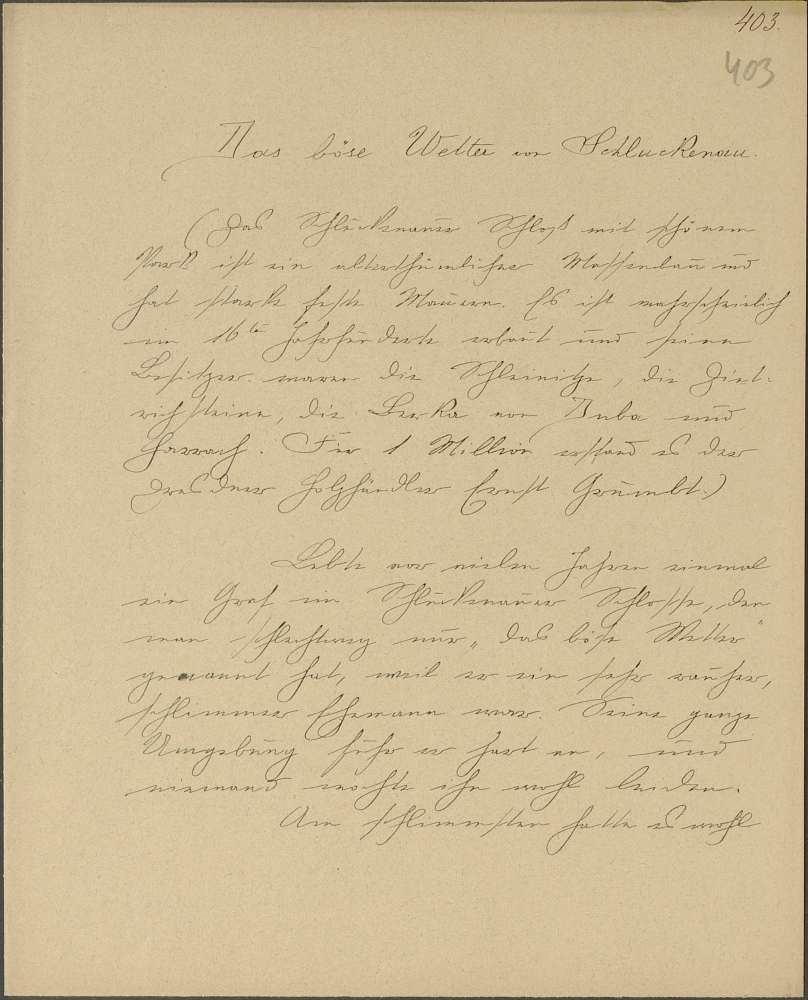 403.
403
Das böse Wetter von Schluckenau.
(Das Schluckenauer Schloß mit schönem
Park ist ein alterthümlicher Massenbau und
hat starke feste Mauern. Es ist wahrscheinlich
im 16te Jahrhunderte erbaut und seine
Besitzer waren die Schleinitze, die Diet-
richsteine, die Berka von Duba und
Harrach. Für 1 Million erstand es der
Dresdner Holzhändler Ernst Grumbt.)
Lebte vor vielen Jahren einmal
ein Graf im Schluckenauer Schlosse, den
man schlechtweg nur „das böse Wetter"
genannt hat, weil er ein sehr rauher,
schlimmer Ehemann war. Seine ganze
Umgebung fuhr er hart an, und
niemand mochte ihn wohl leiden.
Am schlimmsten hatte es wohl